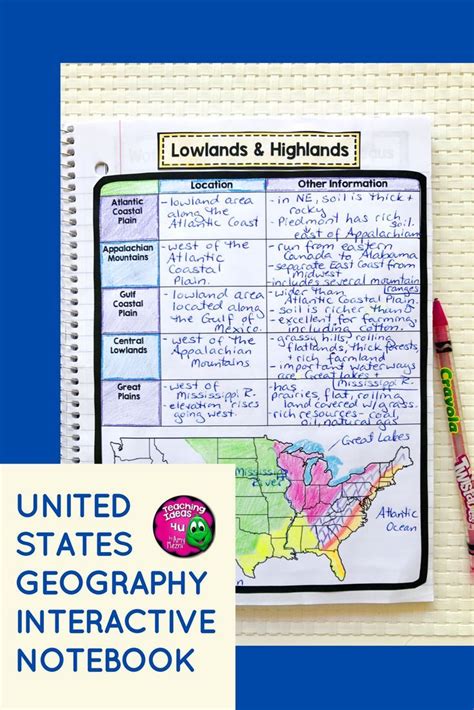 Lowlands & Highlands
Location
Other Information
Atlantic
Coastal
Plain
- lowland area
along the
Atlantic Coast
- in NE, soil is thick +
rocky
- Piedmont has rich soil.
east of Appalachian
Appalachian
Mountains
- west of the
Atlantic
Coastal
Plain.
- run from eastern
Canada to Alabama
- separate East Coast from
Midwest
- includes several mountain
ranges
Gulf
Coastal
Plain
- lowland area
located along
the Gulf of
Mexico.
- wider than
Atlantic Coastal Plain.
- soil is richer than
- excellent for farming,
including cotton.
Central
Lowlands
- west of the
Appalachian
Mountains
- grassy hills, rolling
flatlands, thick forests,
+ rich farmland
- important waterways
are Great Lakes +
Mississippi R.
Great
Plains
- west of
Mississippi R.
- elevation rises
going west.
- has
prairies, flat, rolling
land covered w/grass.
- rich resources - coal,
oil, natural gas
Great Lakes
Mississippi
River
Atlantic
Ocean
Crayola
Teaching
Ideas
4U
by Amy
Mezni
UNITED
STATES
GEOGRAPHY
INTERACTIVE
NOTEBOOK